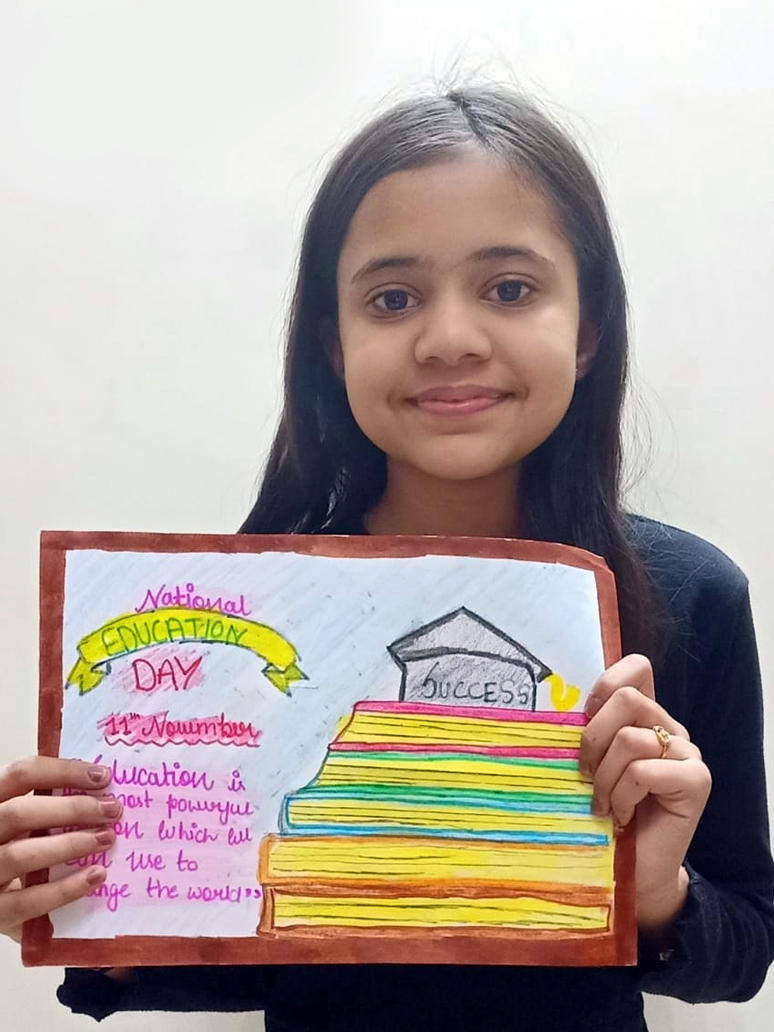 National
EDUCATION
DAY
11th November
Education is
most powerful
which we
can use to
the world"
SUCCESS